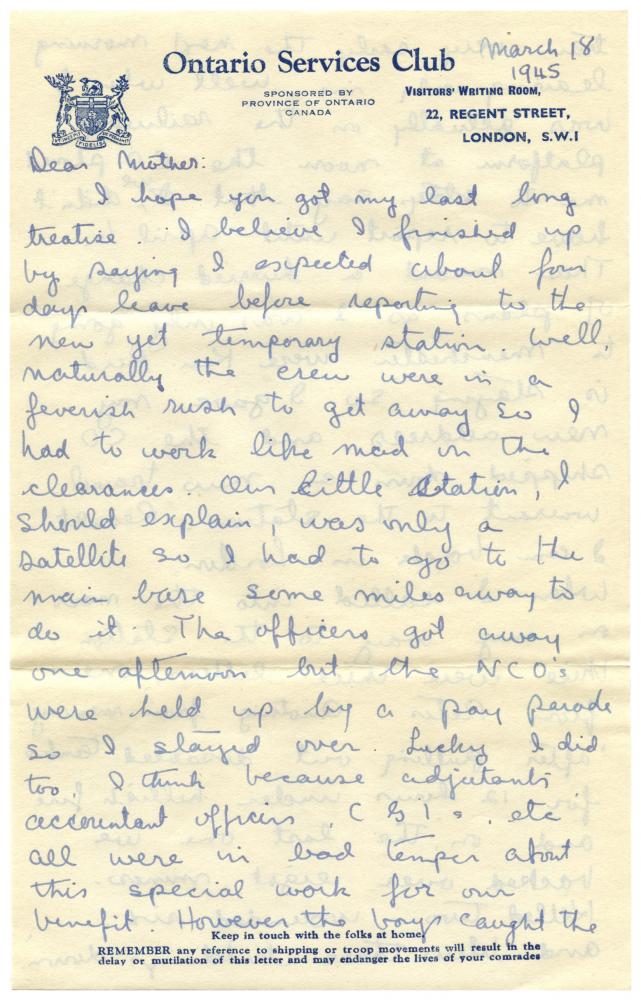 Ontario Services Club
March 18
1945
SPONSORED BY
PROVINCE OF ONTARIO
CANADA
VISITORS' WRITING ROOM,
22, REGENT STREET,
LONDON, S.W.1
Dear Mother:
I hope you got my last long
treatise. I believe I finished up
by saying I expected about four
days leave before reporting to the
new yet temporary station. Well,
naturally the crew were in a
feverish rush to get away so I
had to work like mad on the
clearances. Our little station, I
should explain, was only a
satellite so I had to go to the
main base some miles away to
do it. The officers got away
one afternoon but the NCO's
were held up by a pay parade
so I stayed over. Lucky I did
too, I think because adjutants
accountant officers, CGI's, etc
all were in bad temper about
this special work for our
benefit. However the boys caught the
Keep in touch with the folks at home
REMEMBER any reference to shipping or troop movements will result in the
delay or mutilation of this letter and may endanger the lives of your comrades